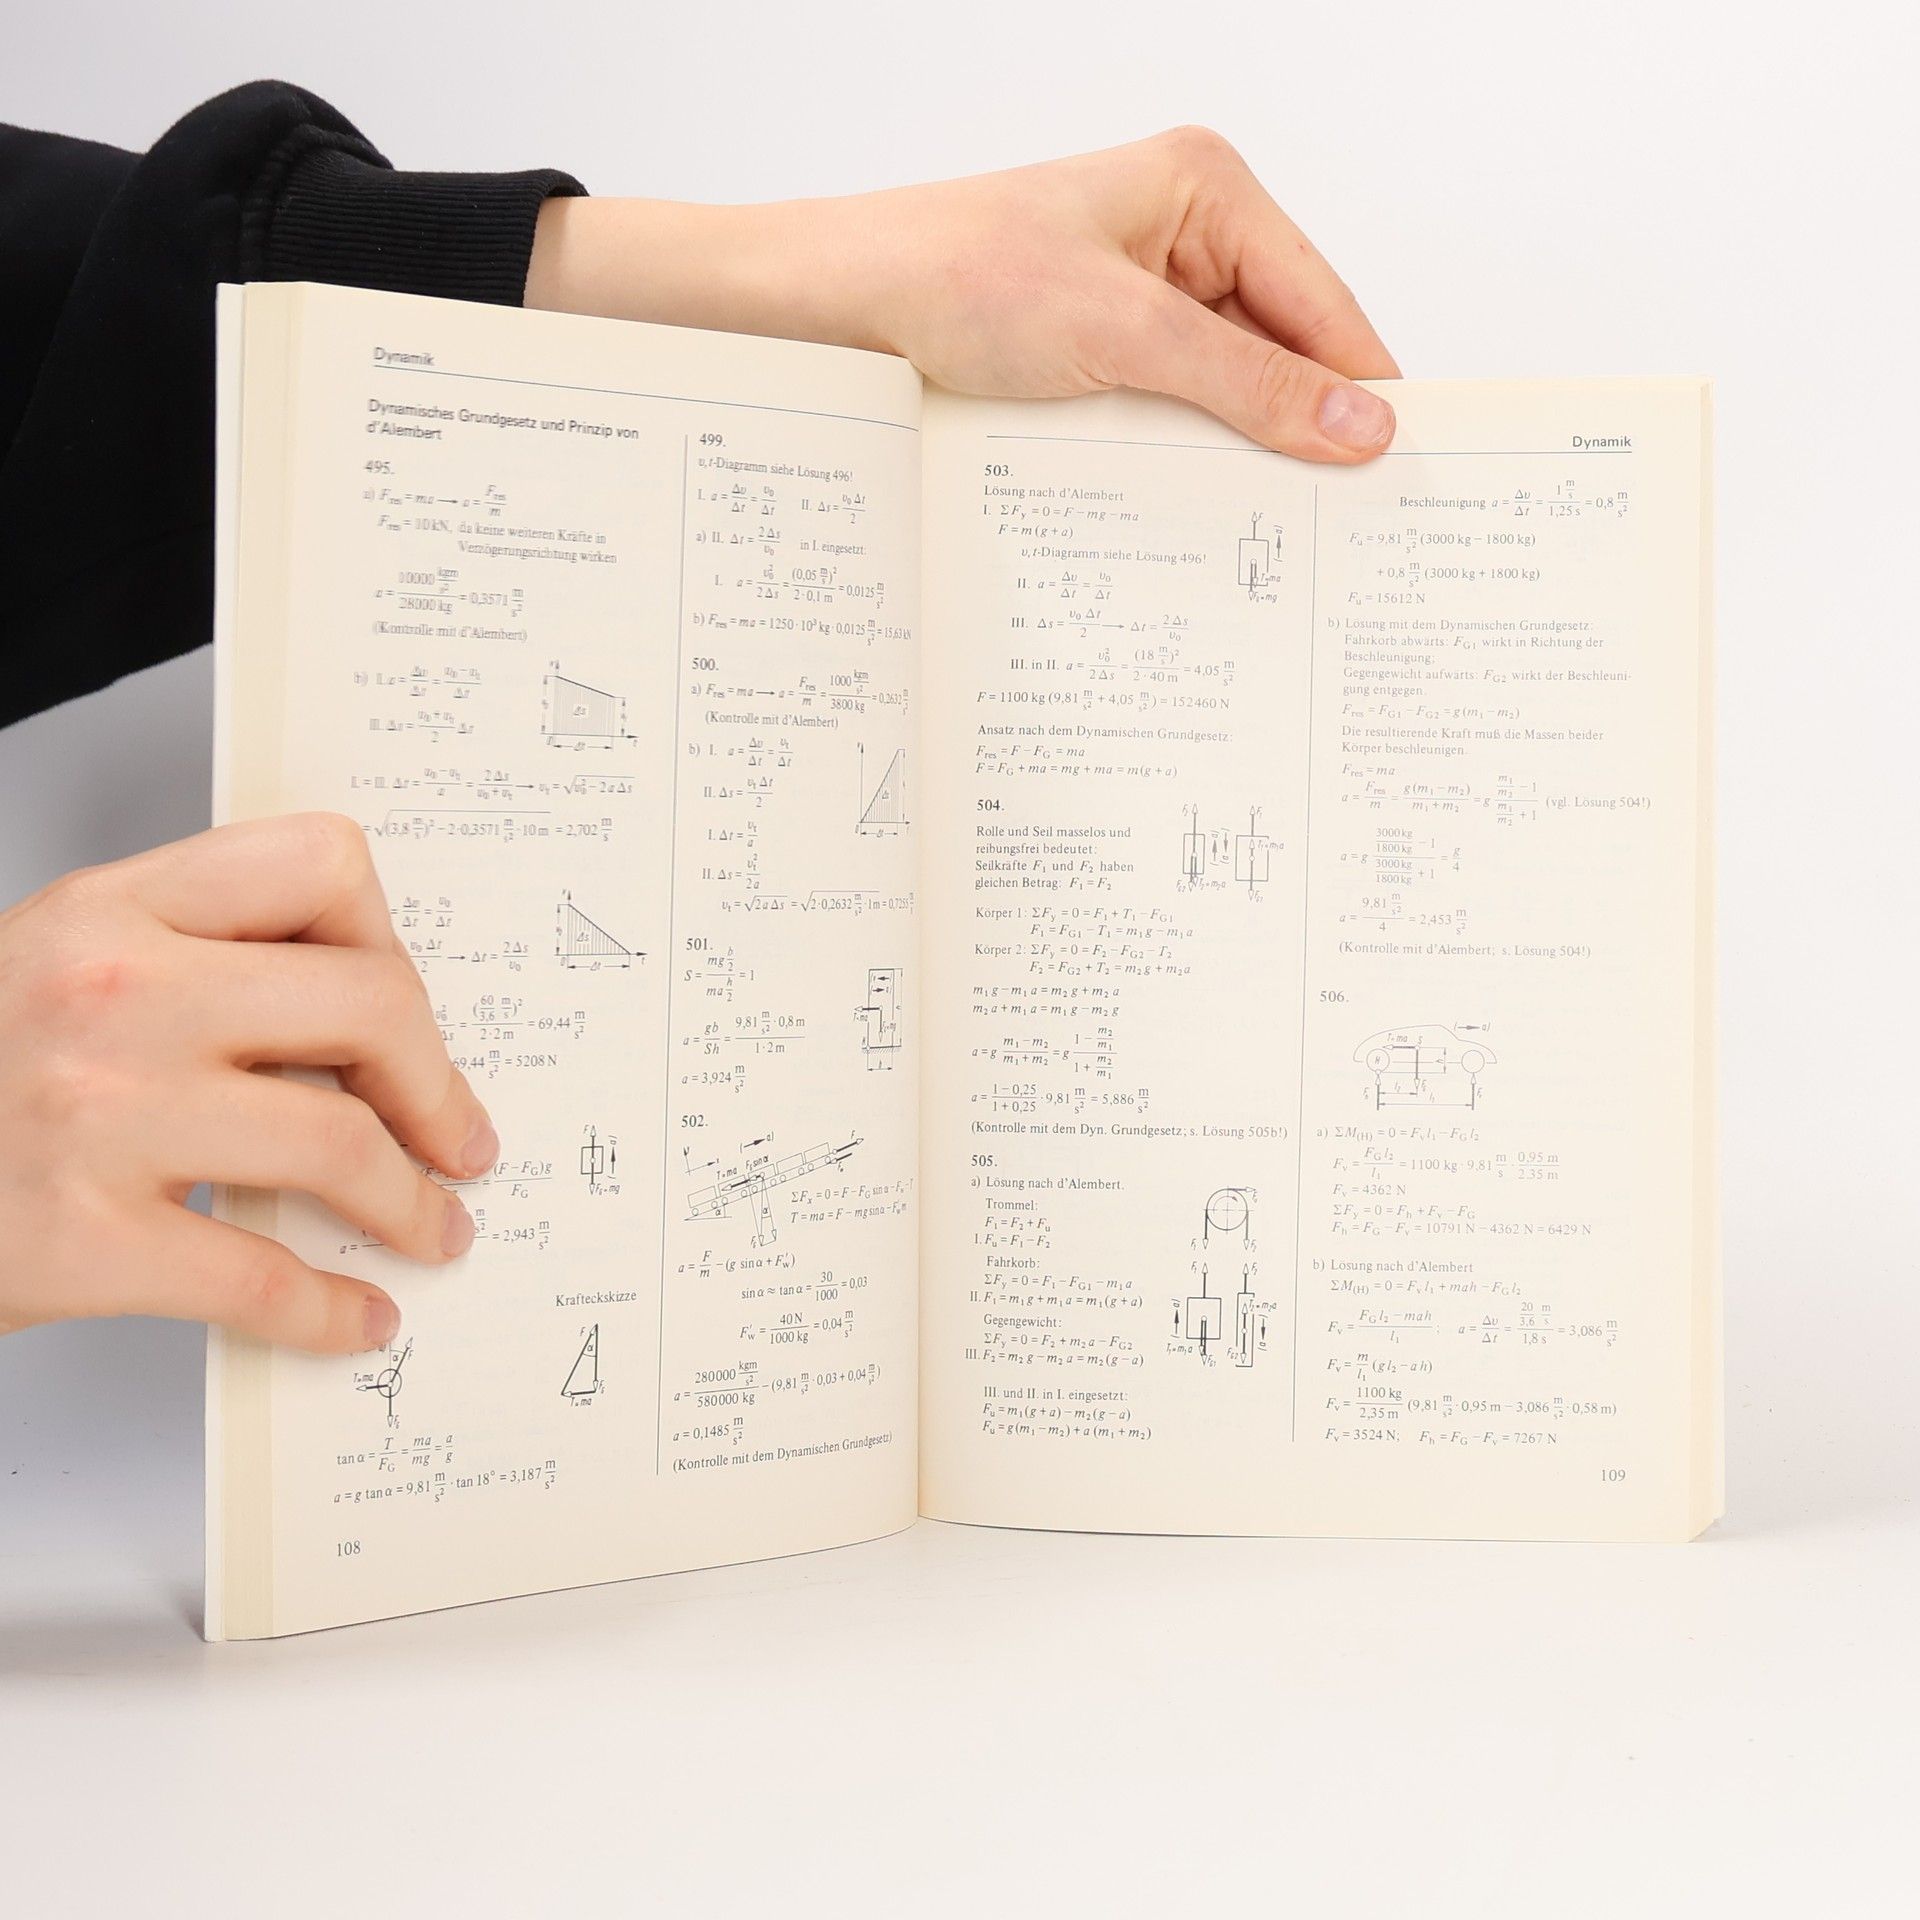 Dynamik
Dynamisches Grundgesetz und Prinzip von
d'Alembert
495.
a) F_res = ma → a = F_res/m
F_res = 10 kN, da keine weiteren Kräfte in
Verzögerungsrichtung wirken
a = 10000 kgm/s² / 28000 kg = 0,3571 m/s²
(Kontrolle mit d'Alembert)
b) I. a = Δυ/Δt = (υ₀ − υₜ)/Δt
II. Δs = (υ₀ + υₜ)/2 Δt
I. = II. Δt = (υ₀ − υₜ)/a = 2Δs/(υ₀ + υₜ) → υₜ = √(υ₀² − 2aΔs)
= √((3,8 m/s)² − 2·0,3571 m/s²·10 m) = 2,702 m/s
= Δυ/Δt = υ₀/Δt
υ₀ Δt/2 → Δt = 2Δs/υ₀
= (60/3,6 m/s)²/(2·2 m) = 69,44 m/s²
69,44 m/s² = 5208 N
= (F − F_G)g/F_G
= 2,943 m/s²
Krafteckskizze
tan α = T/F_G = ma/mg = a/g
a = g tan α = 9,81 m/s² · tan 18° = 3,187 m/s²
108
499.
υ, t-Diagramm siehe Lösung 496!
I. a = Δυ/Δt = υ₀/Δt II. Δs = υ₀ Δt/2
a) II. Δt = 2Δs/υ₀ in I. eingesetzt:
I. a = υ₀²/2Δs = (0,05 m/s)²/(2·0,1 m) = 0,0125 m/s²
b) F_res = ma = 1250·10³ kg·0,0125 m/s² = 15,63 kN
500.
a) F_res = ma → a = F_res/m = 1000 kgm/s² / 3800 kg = 0,2632 m/s²
(Kontrolle mit d'Alembert)
b) I. a = Δυ/Δt = υₜ/Δt
II. Δs = υₜ Δt/2
I. Δt = υₜ/a
II. Δs = υₜ²/2a
υₜ = √(2aΔs) = √(2·0,2632 m/s²·1m) = 0,7255 m/s
501.
S = (mg b/2)/(ma h/2) = 1
a = gb/Sh = (9,81 m/s²·0,8 m)/(1·2 m)
a = 3,924 m/s²
502.
ΣF_x = 0 = F − F_G sin α − F_w − T
T = ma = F − mg sin α − F'_w m
a = F/m − (g sin α + F'_w)
sin α ≈ tan α = 30/1000 = 0,03
F'_w = 40 N/1000 kg = 0,04 m/s²
a = 280000 kgm/s² / 580000 kg − (9,81 m/s²·0,03 + 0,04 m/s²)
a = 0,1485 m/s²
(Kontrolle mit dem Dynamischen Grundgesetz)
Dynamik
503.
Lösung nach d'Alembert
I. ΣF_y = 0 = F − mg − ma
F = m(g + a)
υ, t-Diagramm siehe Lösung 496!
II. a = Δυ/Δt = υ₀/Δt
III. Δs = υ₀ Δt/2 → Δt = 2Δs/υ₀
III. in II. a = υ₀²/2Δs = (18 m/s)²/(2·40 m) = 4,05 m/s²
F = 1100 kg (9,81 m/s² + 4,05 m/s²) = 152460 N
Ansatz nach dem Dynamischen Grundgesetz:
F_res = F − F_G = ma
F = F_G + ma = mg + ma = m(g + a)
504.
Rolle und Seil masselos und
reibungsfrei bedeutet:
Seilkräfte F₁ und F₂ haben
gleichen Betrag: F₁ = F₂
Körper 1: ΣF_y = 0 = F₁ + T₁ − F_G1
F₁ = F_G1 − T₁ = m₁g − m₁a
Körper 2: ΣF_y = 0 = F₂ − F_G2 − T₂
F₂ = F_G2 + T₂ = m₂g + m₂a
m₁g − m₁a = m₂g + m₂a
m₂a + m₁a = m₁g − m₂g
a = g (m₁ − m₂)/(m₁ + m₂) = g (1 − m₂/m₁)/(1 + m₂/m₁)
a = (1 − 0,25)/(1 + 0,25) · 9,81 m/s² = 5,886 m/s²
(Kontrolle mit dem Dyn. Grundgesetz; s. Lösung 505b!)
505.
a) Lösung nach d'Alembert.
Trommel:
F₁ = F₂ + F_u
I. F_u = F₁ − F₂
Fahrkorb:
ΣF_y = 0 = F₁ − F_G1 − m₁a
II. F₁ = m₁g + m₁a = m₁(g + a)
Gegengewicht:
ΣF_y = 0 = F₂ + m₂a − F_G2
III. F₂ = m₂g − m₂a = m₂(g − a)
III. und II. in I. eingesetzt:
F_u = m₁(g + a) − m₂(g − a)
F_u = g(m₁ − m₂) + a(m₁ + m₂)
Beschleunigung a = Δυ/Δt = 1 m/s / 1,25 s = 0,8 m/s²
F_u = 9,81 m/s² (3000 kg − 1800 kg)
+ 0,8 m/s² (3000 kg + 1800 kg)
F_u = 15612 N
b) Lösung mit dem Dynamischen Grundgesetz:
Fahrkorb abwärts: F_G1 wirkt in Richtung der
Beschleunigung;
Gegengewicht aufwärts: F_G2 wirkt der Beschleuni-
gung entgegen.
F_res = F_G1 − F_G2 = g(m₁ − m₂)
Die resultierende Kraft muß die Massen beider
Körper beschleunigen.
F_res = ma
a = F_res/m = g(m₁ − m₂)/(m₁ + m₂) = g (m₁/m₂ − 1)/(m₁/m₂ + 1) (vgl. Lösung 504!)
a = g (3000 kg/1800 kg − 1)/(3000 kg/1800 kg + 1) = g/4
a = 9,81 m/s² / 4 = 2,453 m/s²
(Kontrolle mit d'Alembert; s. Lösung 504!)
506.
a) ΣM_(H) = 0 = F_v l₁ − F_G l₂
F_v = F_G l₂/l₁ = 1100 kg · 9,81 m/s · 0,95 m/2,35 m
F_v = 4362 N
ΣF_y = 0 = F_h + F_v − F_G
F_h = F_G − F_v = 10791 N − 4362 N = 6429 N
b) Lösung nach d'Alembert
ΣM_(H) = 0 = F_v l₁ + mah − F_G l₂
F_v = (F_G l₂ − mah)/l₁; a = Δυ/Δt = (20/3,6 m/s)/1,8 s = 3,086 m/s²
F_v = m/l₁ (g l₂ − a h)
F_v = 1100 kg/2,35 m (9,81 m/s²·0,95 m − 3,086 m/s²·0,58 m)
F_v = 3524 N; F_h = F_G − F_v = 7267 N
109